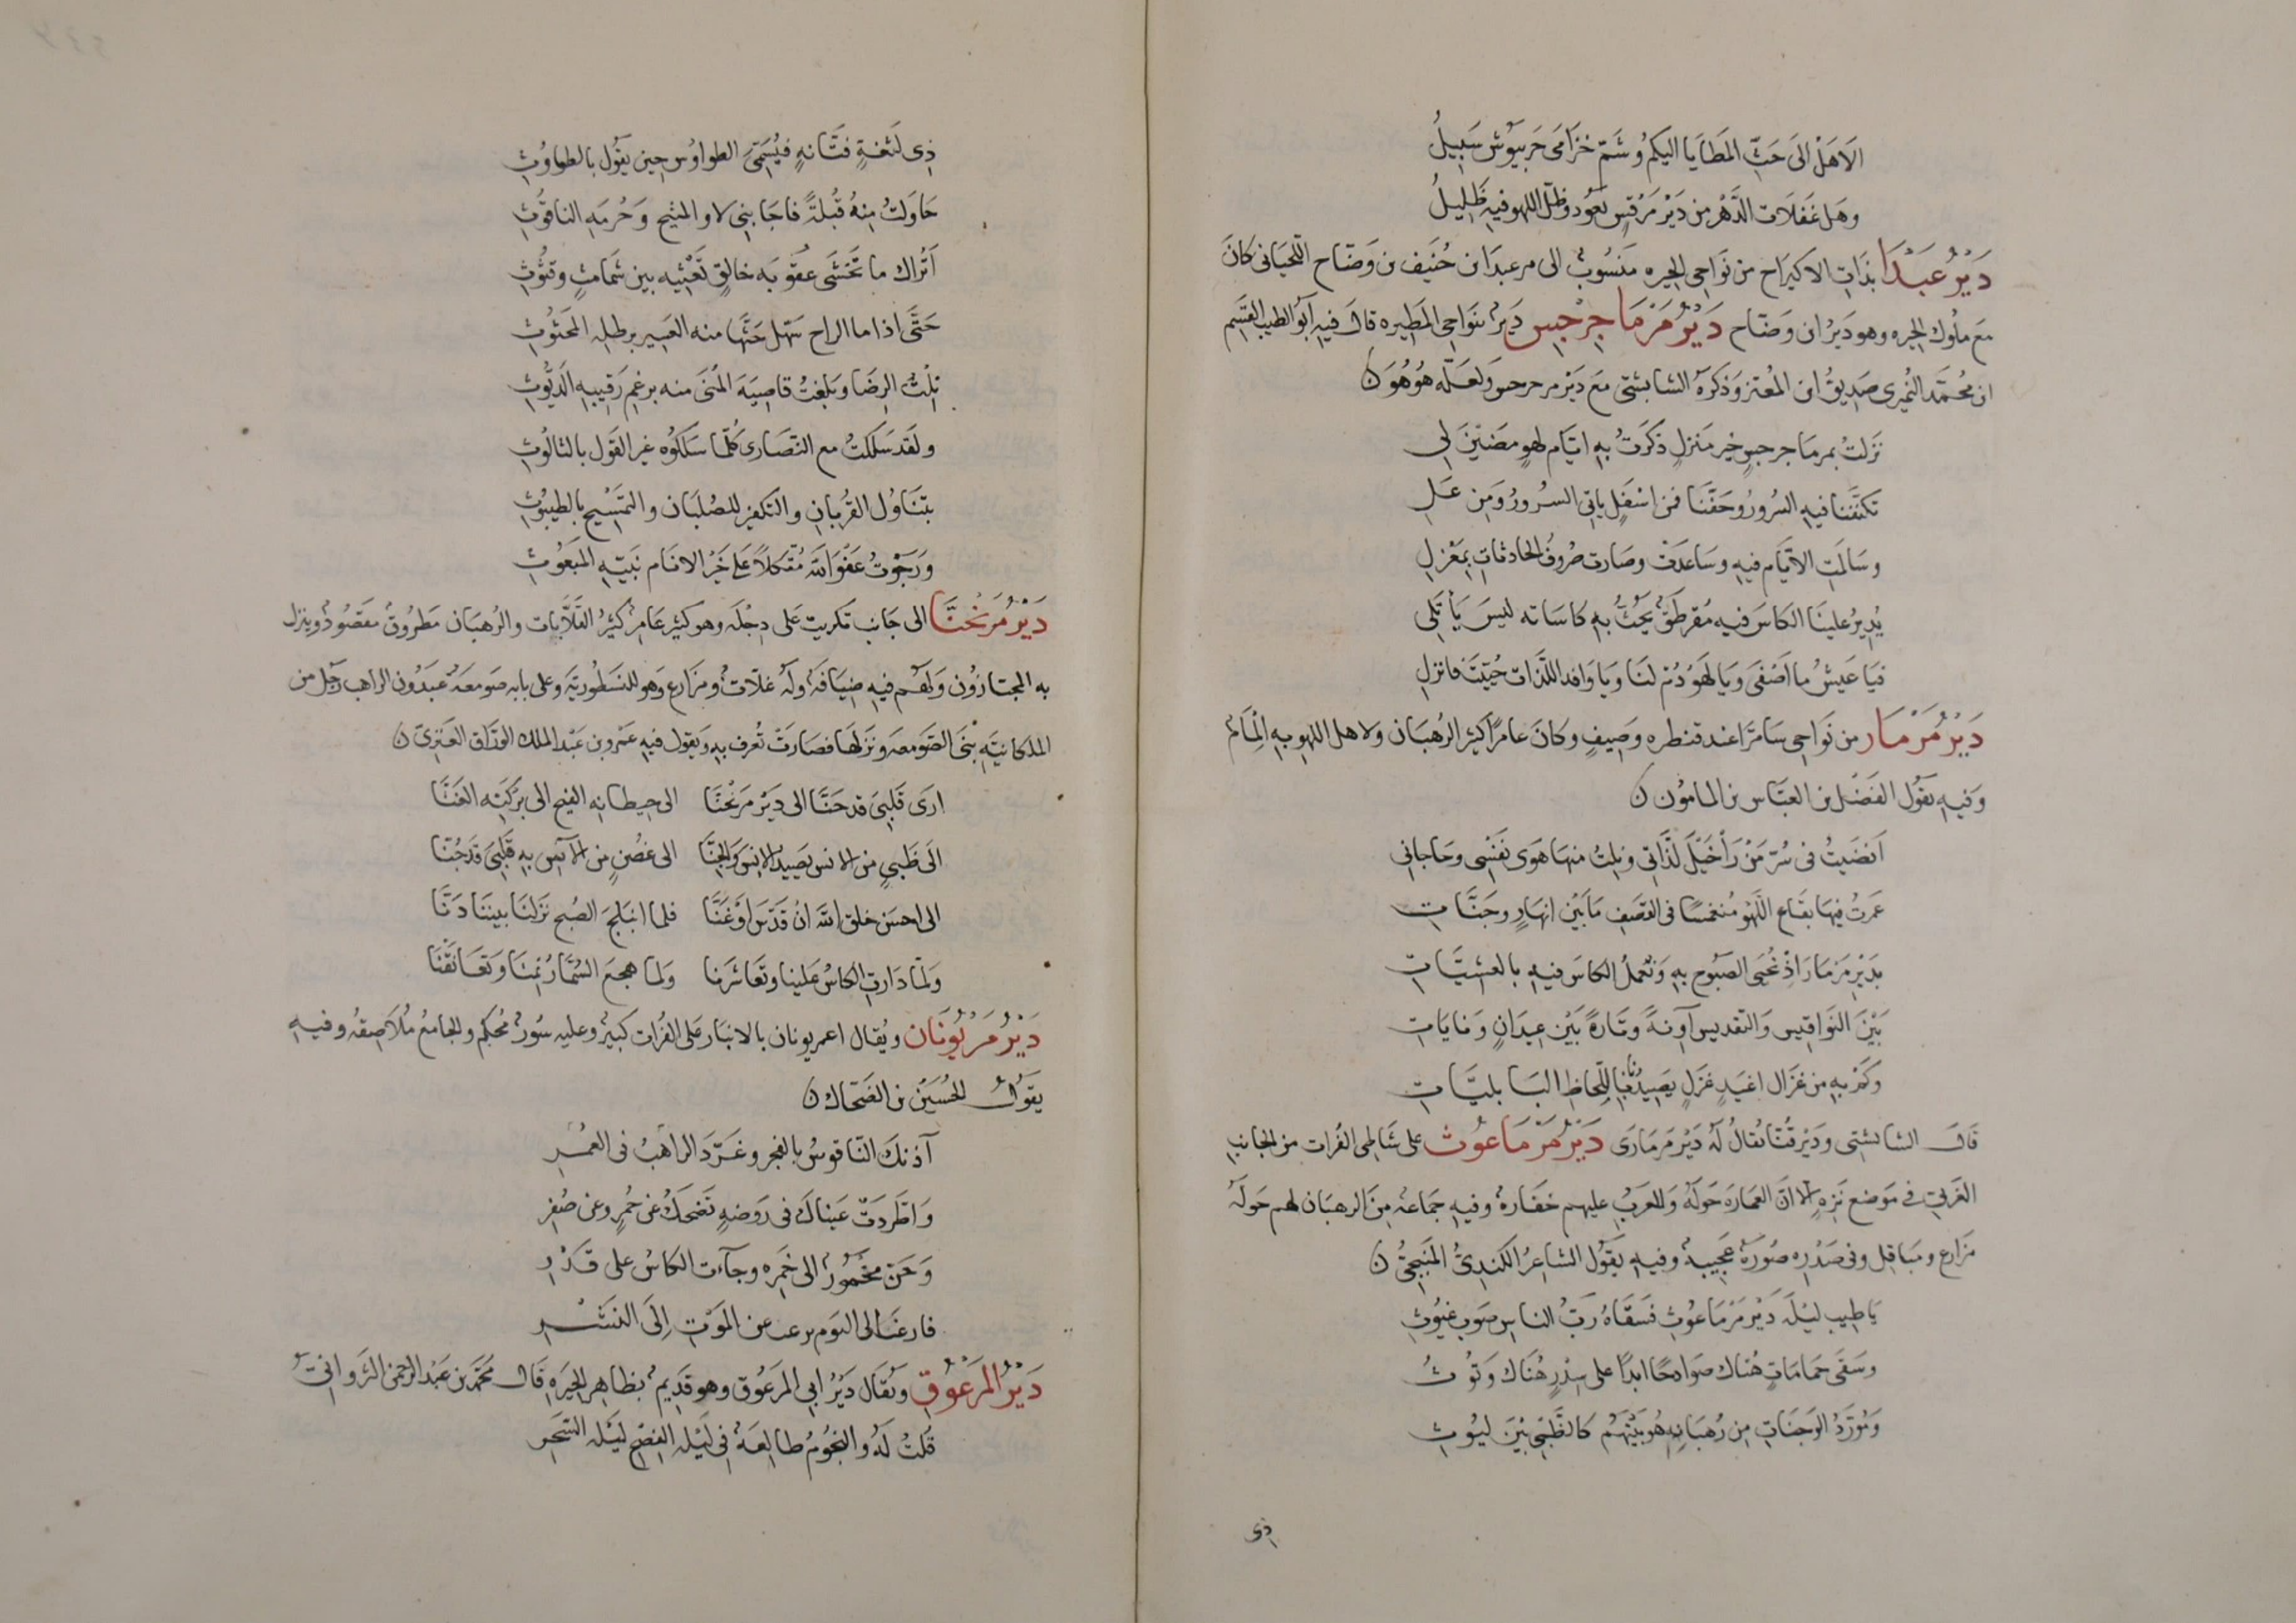 الاهل الى حث المطايا اليكم وشم خزامى حربنوش سبيل
وهل غفلات الدهر من دير مرقس تعود وظل اللهو فيه ظليل
دير عبدا بذات الاكيراح من نواحى الحيره منسوب الى مرعبدا بن حنيف بن وضاح اللحيانى كان
مع ملوك الحيره وهو دير ابن وضاح دير مرماجرجس دير بنواحى المطيره قال فيه ابو الطيب القسم
ابن محمد النميرى صديق ابن المعتز وذكره الشابشتى مع دير مرجرجس ولعله هو هو ن
نزلت بمرماجرجس خير منزل ذكرت به ايام لهو مضين لى
تكنفنا فيه السرور وحفنا فمن اسفل ياتى السرور ومن عل
وسالمت الايام فيه وساعدت وصارت صروف الحادثات بمعزل
يدير علينا الكاس فيه مقرطق يحث به كاساته ليس يأتلى
فيا عيش ما اصفى ويا لهو دم لنا ويا وافد اللذات حييت فانزل
دير مرمار من نواحى سامرا عند قنطره وصيف وكان عامرا كثير الرهبان ولاهل اللهو به المام
وفيه يقول الفضل بن العباس بن المامون ن
انضيت فى سر من رأ خيل لذاتى ونلت منها هوى نفسى وحاجاتى
عمرت فيها بقاع اللهو منغمسا فى القصف ما بين انهار وجنات
بدير مرمار اذ نحيى الصبوح به ونعمل الكاس فيه بالعشيات
بين النواقيس والتقديس آونة وتارة بين عيدان ونايات
وكم به من غزال اغيد غزل يصيدنا باللحاظ البابليات
قال الشابشتى ودير قنا يقال له دير مرمارى دير مرماعوث على شاطى الفرات من الجانب
الغربى فى موضع نزه الا ان العماره حوله وللعرب عليهم خفارة وفيه جماعة من الرهبان لهم حوله
مزارع ومباقل وفى صدره صورة عجيبة وفيه يقول الشاعر الكندى المنبجى ن
يا طيب ليلة دير مرماعوث فسقاه رب الناس صوب غيوث
وسقى حمامات هناك صوادحا ابدا على سدر هناك وتوث
ومورد الوجنات من رهبانه هو بينهم كالظبى بين ليوث
ذى
ذى لثغة فتانة فيسمى الطواوس حين يقول بالطواوث
حاولت منه قبلة فاجابنى لا والمثيح وحرمه الناقوث
اتراك ما تخشى عقوبه خالق تعثيه بين شمامث وقثوث
حتى اذا ما الراح سهل حثها منه العسير برطله المحثوث
نلت الرضا وبلغت قاصيه المنى منه برغم رقيبه الديوث
ولقد سلكت مع النصارى كلما سلكوه غير القول بالثالوث
بتناول القربان والتكفير للصلبان والتمسيح بالطيبوث
ورجوت عفو الله متكلا على خير الانام نبيه المبعوث
دير مريحنا الى جانب تكريت على دجله وهو كثير عامر كثير القلايات والرهبان مطروق مقصود وينزل
به المجتازون ولهم فيه ضيافة وله غلات ومزارع وهو للنسطوريه وعلى بابه صومعة عبدون الراهب رجل من
الملكانيه بنى الصومعه ونزلها فصارت تعرف به ويقول فيه عمرو بن عبد الملك الوراق العنزى ن
ارى قلبى قد حنا الى دير مريحنا الى حيطانه الفيح الى بركته الغنا
الى ظبى من الانس يصيد الانس والجنا الى غصن من الآس به قلبى قد جنا
الى احسن خلق الله ان قدس او غنا فلما انبلج الصبح نزلنا بيننا دنا
ولما دارت الكاس علينا وتعاشرنا ولما هجع السمار نمنا وتعانقنا
دير مريونان ويقال اعمر يونان بالانبار على الفرات كبير وعليه سور محكم والجامع ملاصقه وفيه
يقول الحسين بن الضحاك ن
آذنك الناقوس بالفجر وغرد الراهب فى العمر
واطردت عيناك فى روضه تضحك عن حمر وعن صفر
وحن مخمور الى خمره وجاءت الكاس على قدر
فارغب الى النوم عن الموت الى النشر
دير المزعوق ويقال دير ابى المزعوق وهو قديم بظاهر الحيره قال محمد بن عبد الرحمن الثروانى
قلت له والنجوم طالعة فى ليله الفصح ليله السحر